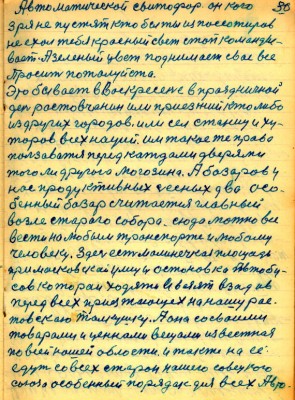 30
Автоматический свитодор. он кого
зря не пустят кто бы ты из посетителов
не ехал тебя красный свет стой команды-
вает. А зеленый цвет поднимает свае все
просит пожалуйста.
Это бывает в Воскресене в праздничной
ден ростовчанин или приезжий кто либо
из других городов. или сел станиц и ху-
торов всех наций. им такое те права
ползоватя перед каждами дверями
того ли другого могозина. А базаров у
нас продуктивных чесных два осо-
бенный базар считается главный
возле старого собора. сюда можно все
вести на любым транспорте и любому
человеку. Здесь есть машинечка площадь
при маековскай улицы остановка Автобу-
сов которая ходять в взад ав
перед всех приезжающех на нашу рас-
товскаю Толкучку. Аона со своими
товарами и ценнами вещами известная
по всей нашей области. и также на её
едут со всех старон нашего совецкого
союза особенный порядак для всех Авто-